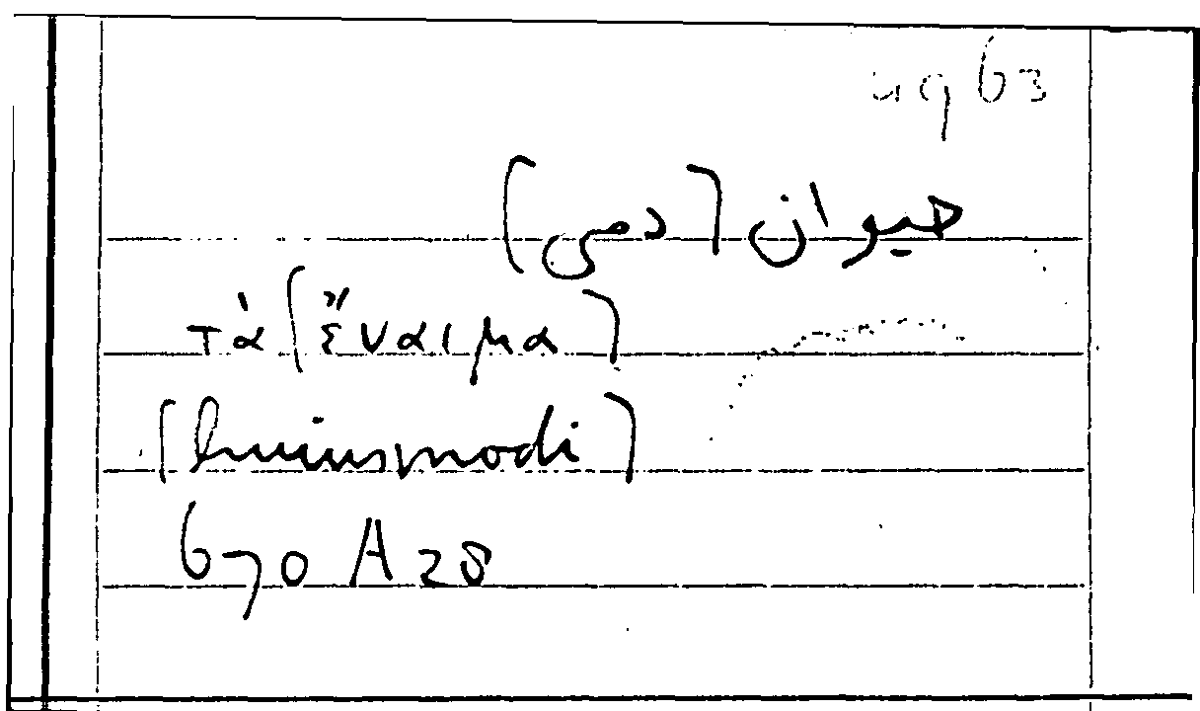 63
حيوان [دمى]
τὰ [ἔναιμα]
[huiusmodi]
670 A 28